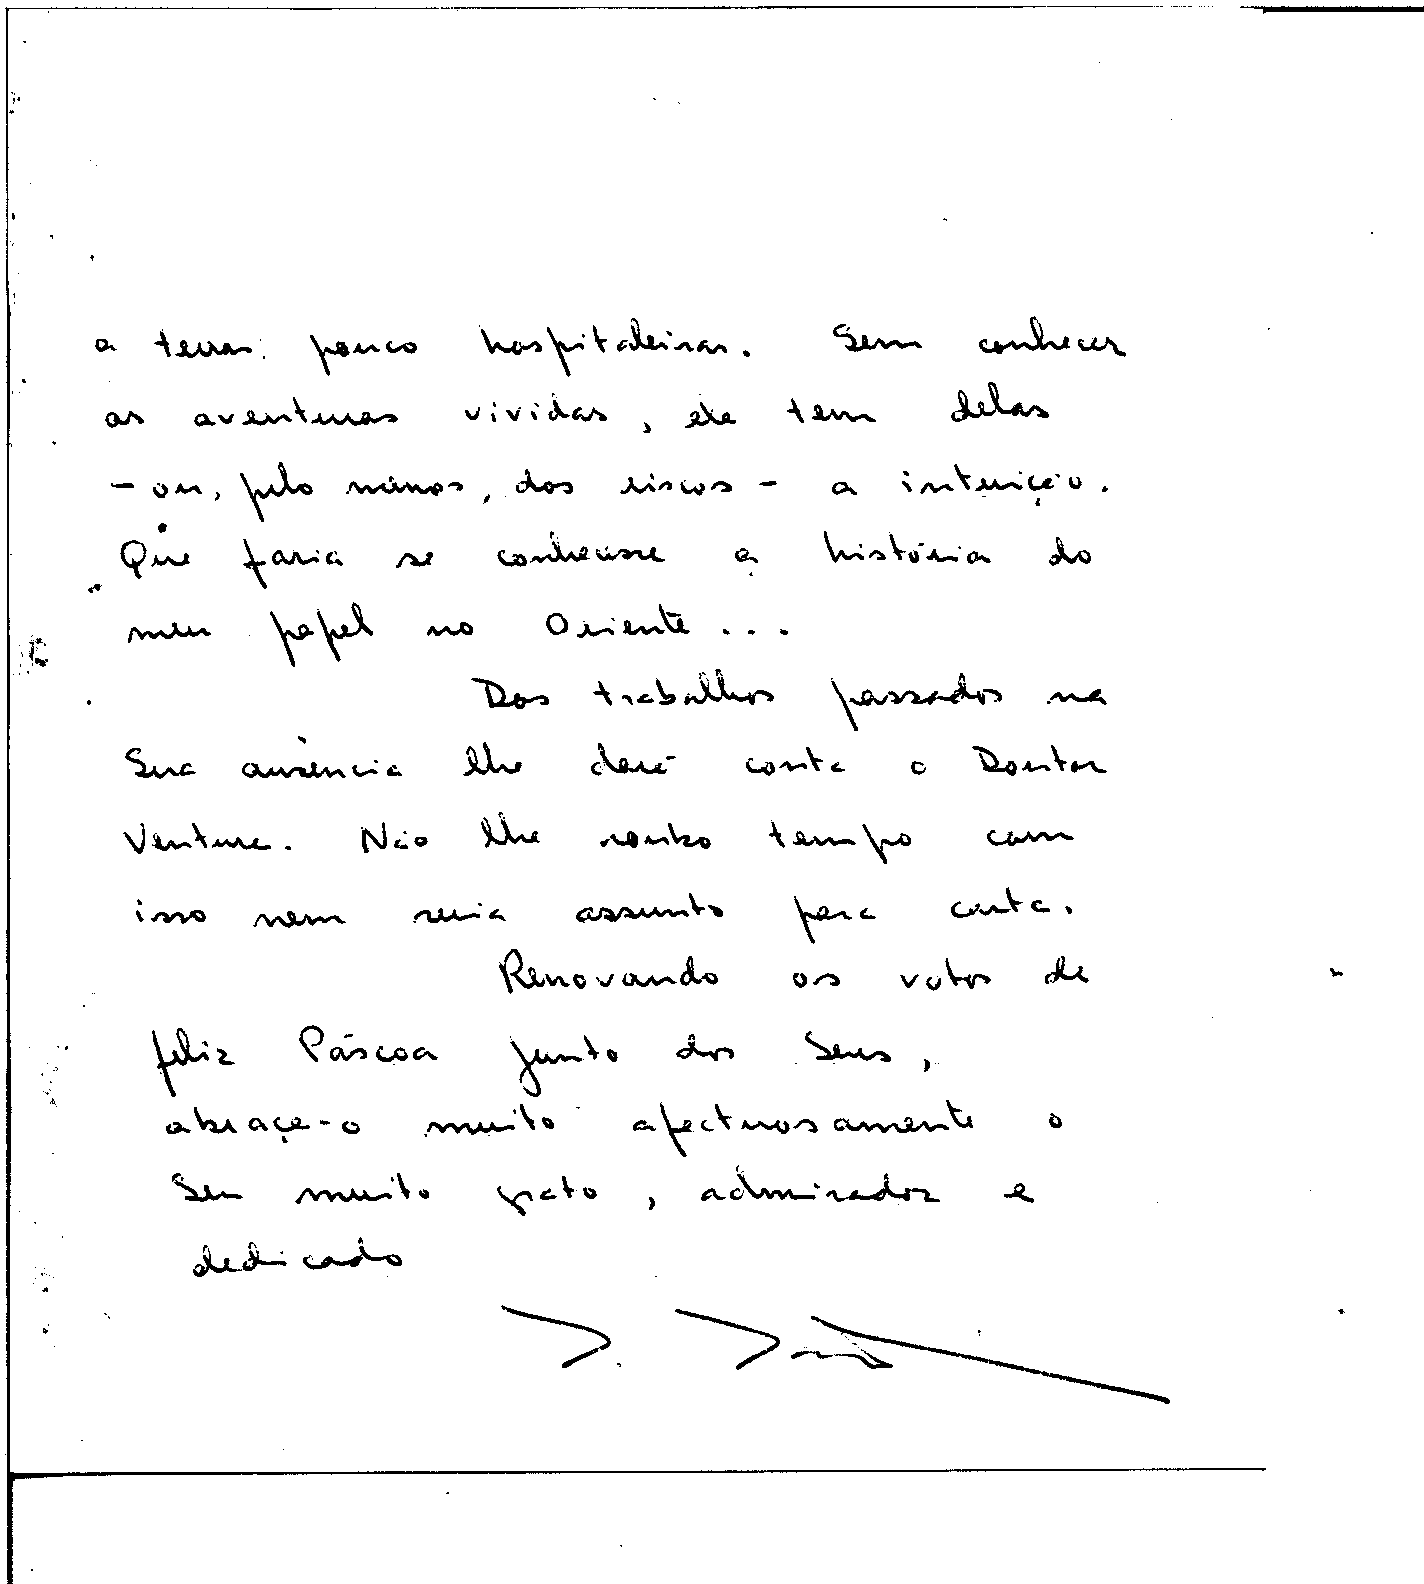 a terras pouco hospitaleiras. Sem conhecer
as aventuras vividas, ele tem delas
- ou, pelo menos, dos riscos - a intuição.
Que faria se conhecesse a história do
meu papel no Oriente...
Dos trabalhos passados na
Sua ausência lhe dará conta o Doutor
Ventura. Não lhe roubo tempo com
isso nem seria assunto para carta.
Renovando os votos de
feliz Páscoa junto dos Seus,
abraça-o muito afectuosamente o
Seu muito grato, admirador e
dedicado